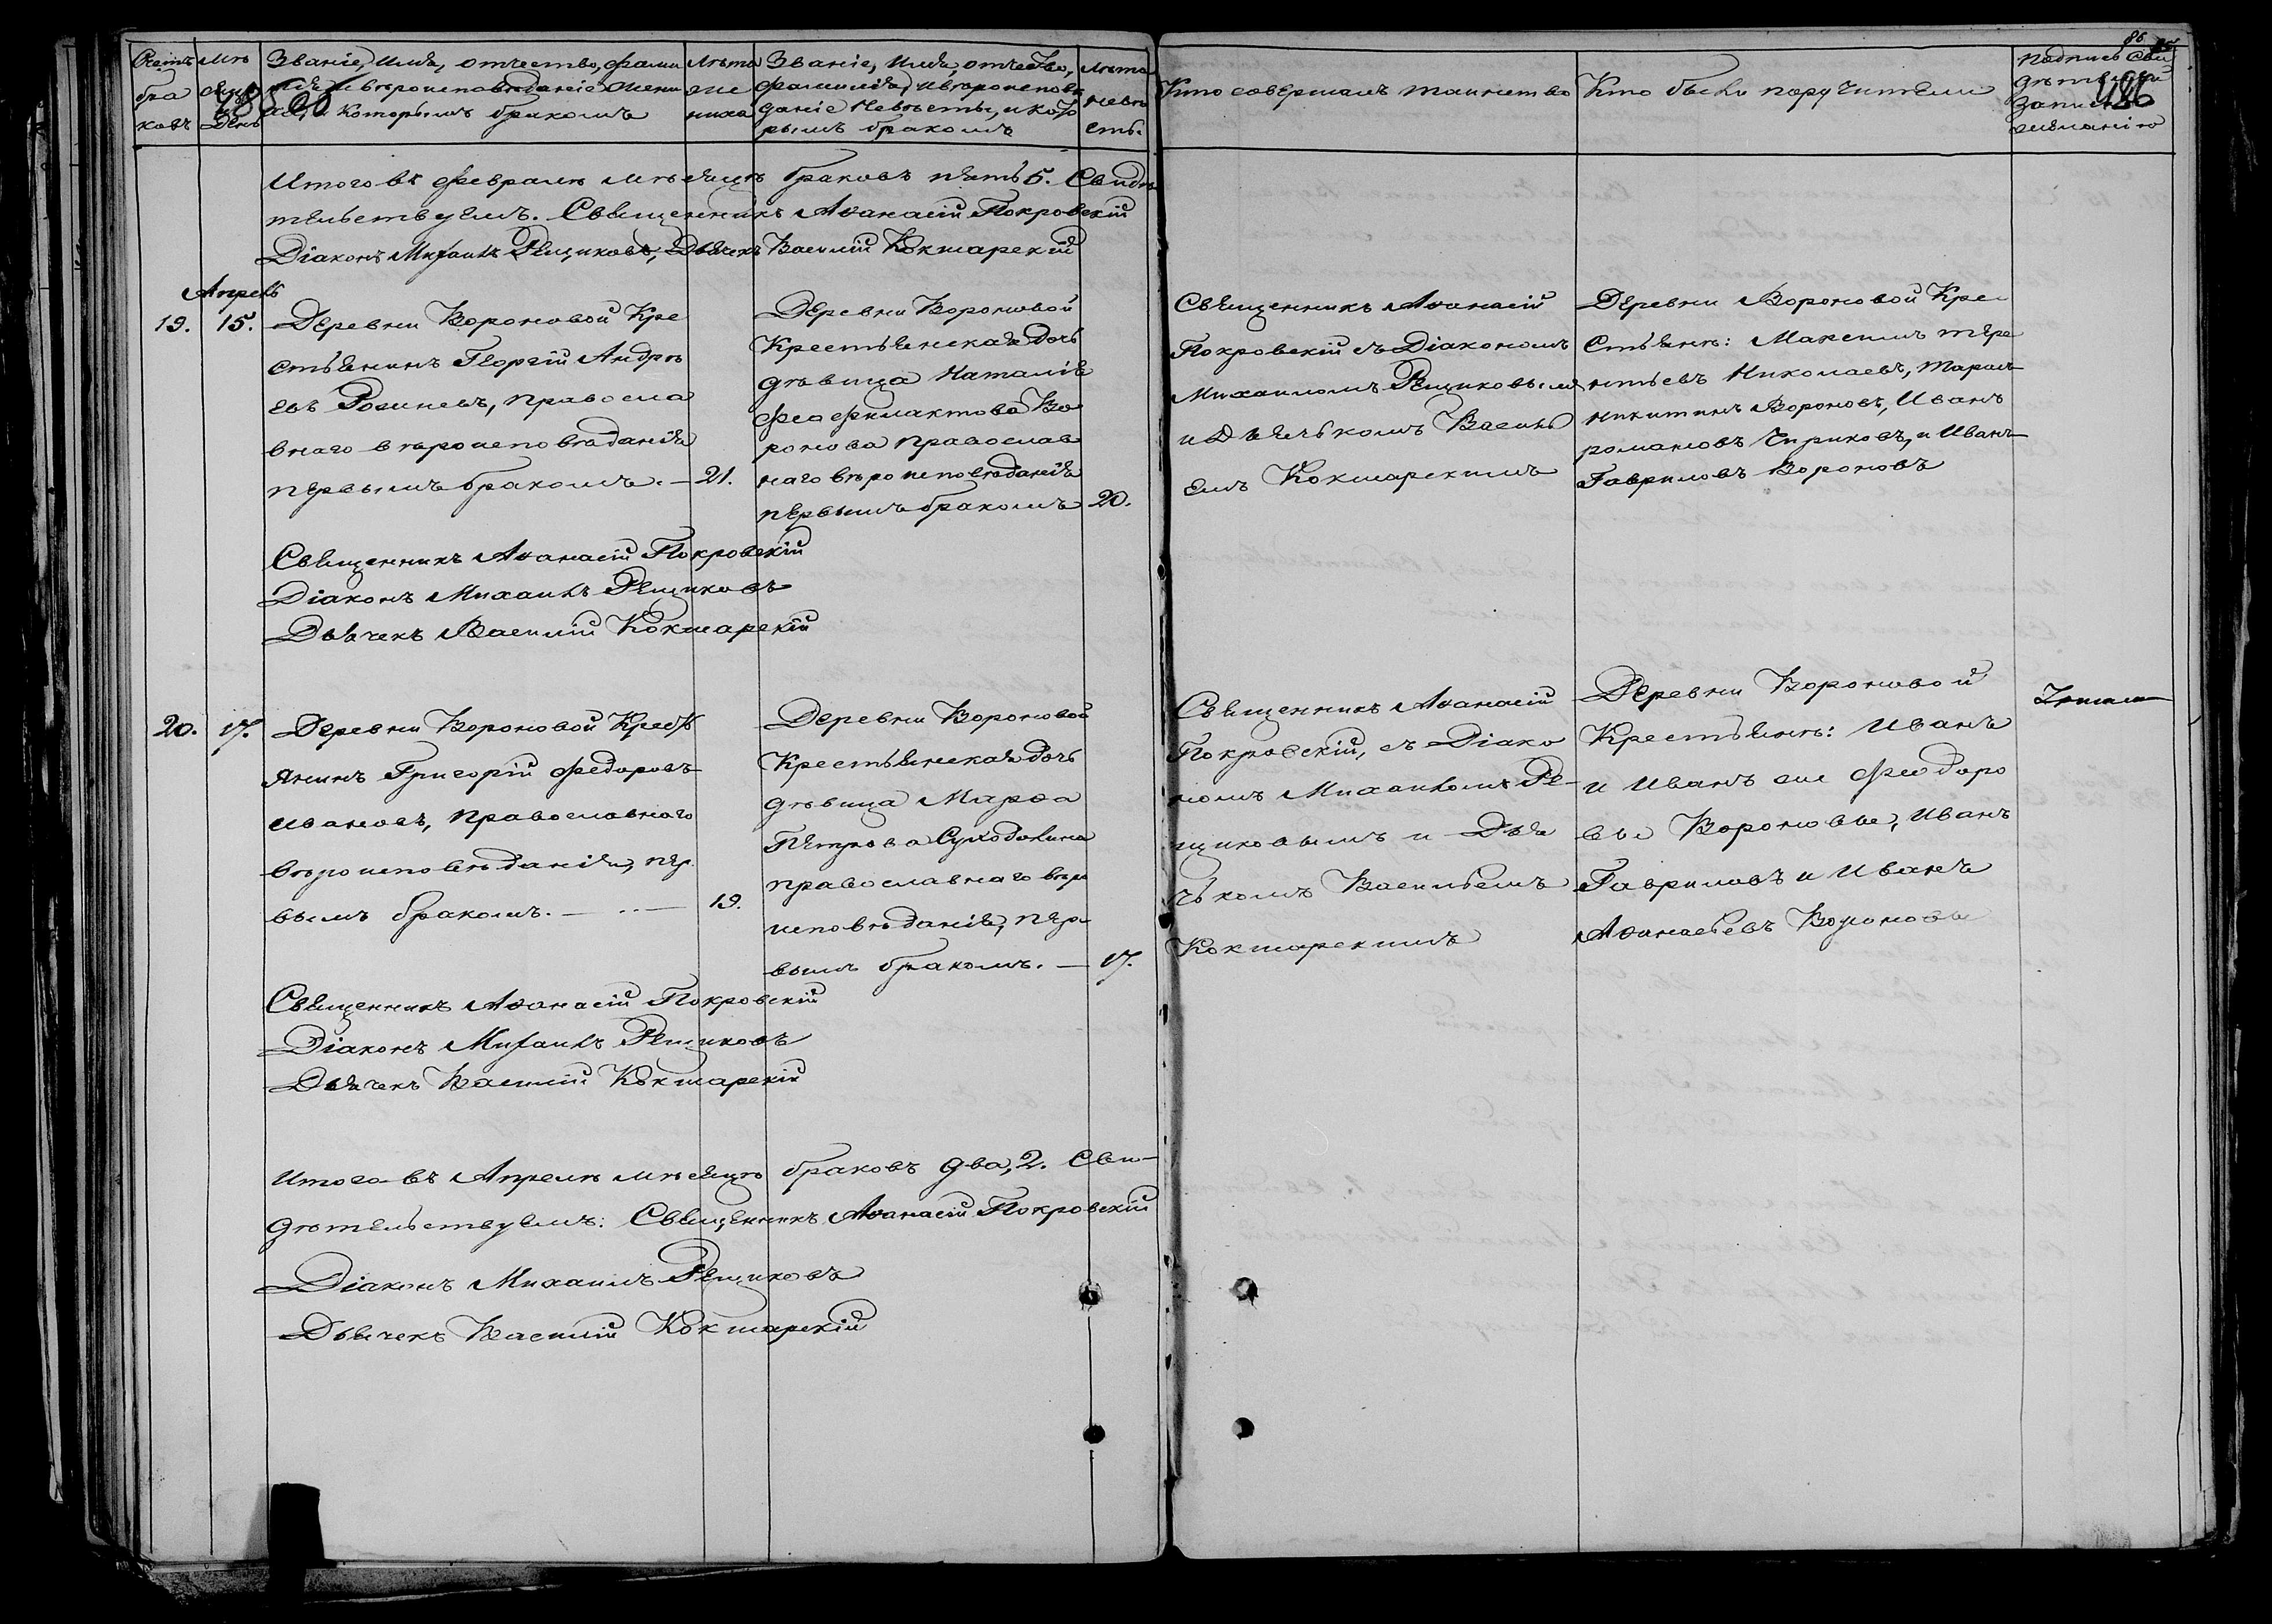 86
486
Счетъ браковъ
Мѣсяцъ и День
Званіе, Имя, отчество, фами
лія и вѣроисповѣданіе жени
ха, и которымъ бракомъ
Лѣта
же
ниха
Званіе, Имя, отчество,
фамилія, и вѣроисповѣ
даніе Невѣсты, и кото
рымъ бракомъ
Лѣта
невѣ
сты.
Кто совершалъ таинство
Кто были поручители
Подпись Сви
дѣтелей
записи по
желанію
Итого въ февралѣ мѣсяцѣ браковъ пять 5. Свидѣ
тельствуемъ. Священникъ Аѳанасій Покровскій
Діаконъ Михаилъ Рещиковъ, Дьячекъ Василій Кокшарскій
Апрель
19. 15.
Деревни Вороновой Кре
стьянинъ Георгій Андрѣ
евъ Рогиневъ, правосла
внаго вѣроисповѣданія
первымъ бракомъ. — 21.
Деревни Вороновой
Крестьянская дочь
дѣвица Наталія
Феофилактова Во
ронова православ
наго вѣроисповѣданія
первымъ бракомъ 20.
Священникъ Аѳанасій
Покровскій съ Діакономъ
Михаиломъ Рещиковымъ
и Дьячькомъ Василь
емъ Кокшарскимъ
Деревни Вороновой Кре
стьянѣ: Максимъ тере
нтьевъ Николаевъ, Тарасъ
никитинъ Вороновъ, Иванъ
романовъ Чириковъ, и Иванъ
Гавриловъ Вороновъ
Священникъ Аѳанасій Покровскій
Діаконъ Михаилъ Рещиковъ
Дьячекъ Василій Кокшарскій
20. 17.
Деревни Вороновой Кресть
янинъ Григорій федоровъ
ивановъ, православнаго
вѣроисповѣданія, пер
вымъ бракомъ. — 19.
Деревни Вороновой
Крестьянская дочь
дѣвица Марѳа
Петрова Суходолина
православнаго вѣро
исповѣданія, пер
вымъ бракомъ. — 17.
Священникъ Аѳанасій
Покровскій, съ Діако
номъ Михаиломъ Ре-
щиковымъ и Дья
чькомъ Васильемъ
Кокшарскимъ
Деревни Вороновой
Крестьянѣ: Иванъ
и Иванъ же Феодоро
вы Вороновы, Иванъ
Гавриловъ и Иванъ
Аѳанасьевъ Вороновы
Священникъ Аѳанасій Покровскій
Діаконъ Михаилъ Рещиковъ
Дьячекъ Василій Кокшарскій
Итого въ Апрелѣ мѣсяцѣ браковъ два, 2. Сви-
дѣтельствуемъ: Священникъ Аѳанасій Покровскій
Діаконъ Михаилъ Рещиковъ
Дьячекъ Василій Кокшарскій